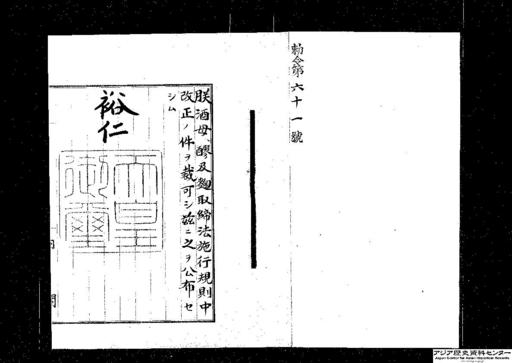 勅令第六十一號
朕酒母、醪及麴取締法施行規則中
改正ノ件ヲ裁可シ茲ニ之ヲ公布セ
シム
裕仁
天皇
御璽
アジア歴史資料センター
Japan Center for Asian Historical Records